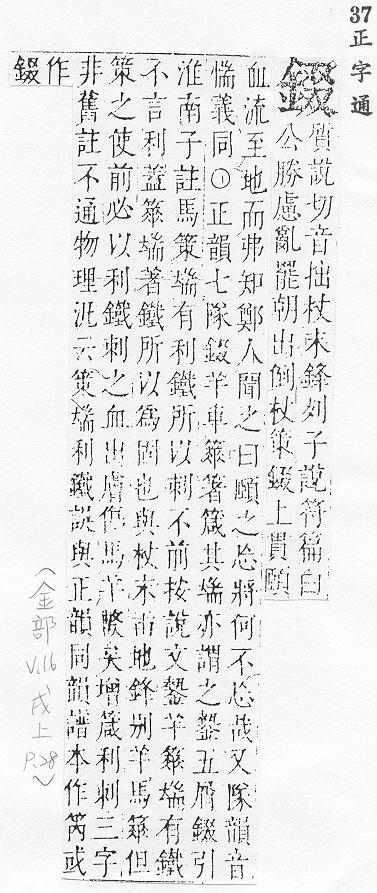 37 正字通
錣 質說切音拙杖末鋒列子說符篇白
公勝慮亂罷朝出倒杖策錣上貫頤
血流至地而弗知鄭人聞之曰頤之忘將何不忘哉又隊韻音
惴義同○正韻七隊錣羊車箠著箴其端亦謂之五屑錣引
淮南子註馬策端有利鐵所以刺不前按說文羊箠端有鐵
不言利蓋箠端著鐵所以爲固也與杖末出地鋒別羊馬箠但
策之使前必以利鐵刺之血出膚傷馬羊斃矣增箴利刺三字
非舊註不通物理汎云策端利鐵誤與正韻同韻譜本作笍或
作
錣
(金部 V.16 戌上 P.28)